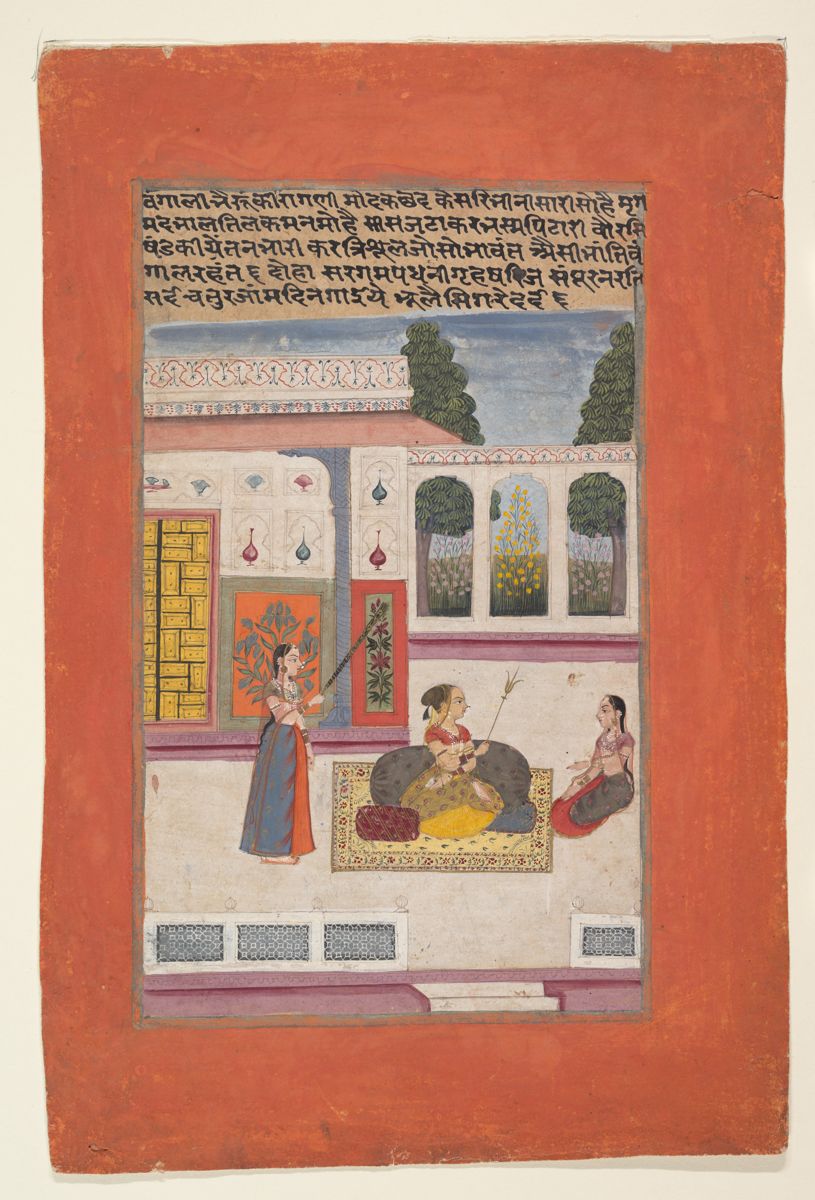 वंगाली भैरुं की रागणी मोदक छंद केसरि भीनी सारी सोहै मृग
मद भाल तिलक मन मोहै सीस जटा कर भस्म पिटारी वौरसि
षंड की ये तन भारी कर त्रिशूल जो सोभावंत असी भांति वं
गाल रहंत ६ दोहा सरगमपधनी गृह षरिज संपूरन रति
सई चतुर जांम दिन गाईये भूलै सिगरे दई ६